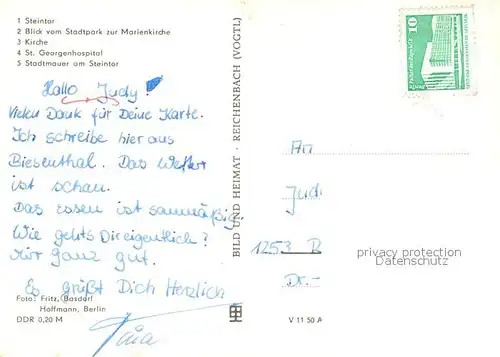 1 Steintor
2 Blick vom Stadtpark zur Marienkirche
3 Kirche
4 St. Georgenhospital
5 Stadtmauer am Steintor
Hallo Judy!
Vielen Dank für Deine Karte.
Ich schreibe hier aus
Biesenthal. Das Wetter
ist schau.
Das Essen ist saumäßig.
Wie gehts Dir eigentlich?
Mir ganz gut.
Es grüßt Dich Herzlich
Foto: Fritz, Basdorf
Hoffmann, Berlin
DDR 0,20 M
BILD UND HEIMAT · REICHENBACH (VOGTL)
V 11 50 A
10
An
Judi
1253 R
Dr.-
privacy protection
Datenschutz